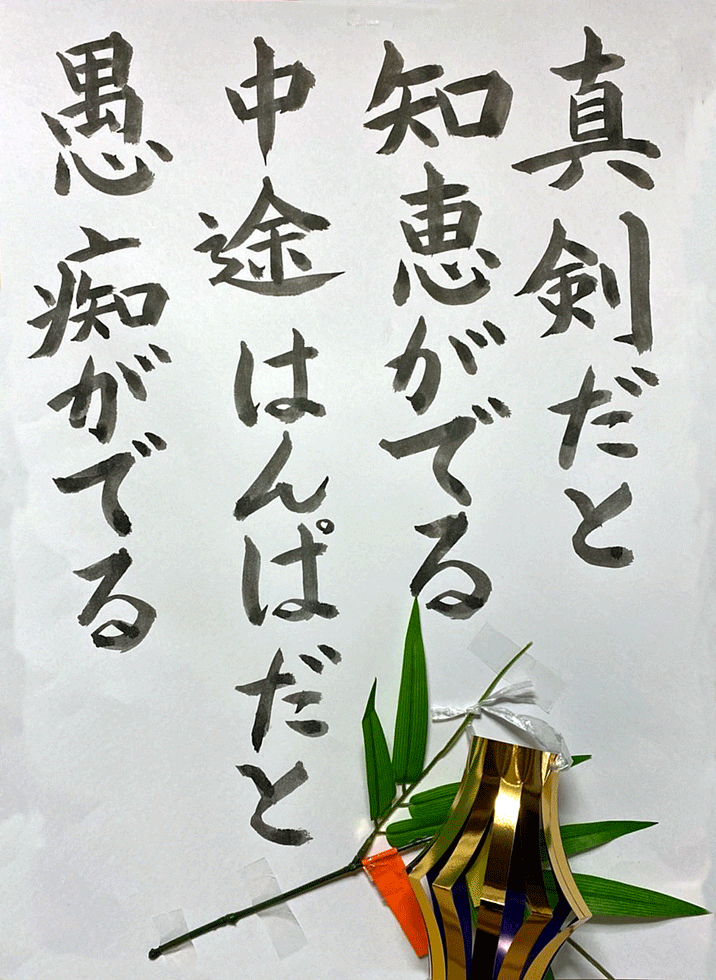 真剣だと
知恵がでる
中途はんぱだと
愚痴がでる